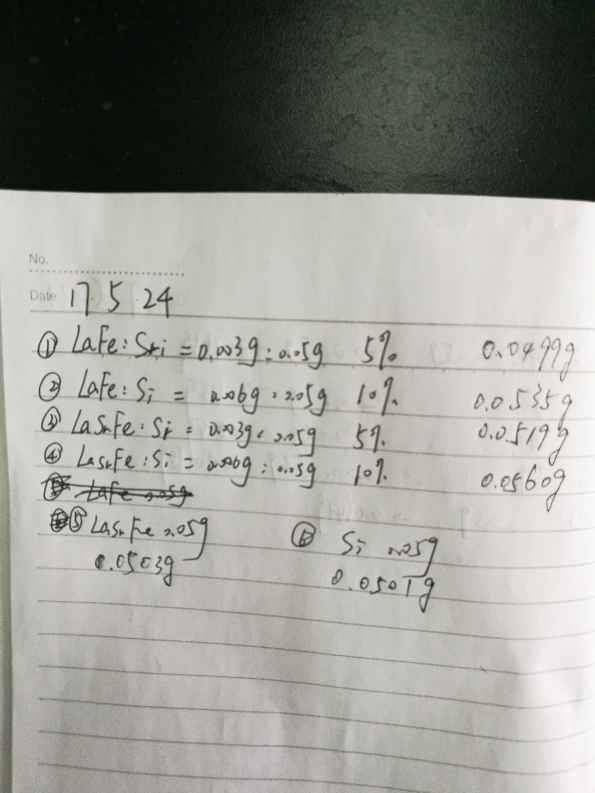 No.
Date 17.5.24
① LaFe:Si = 0.003g:0.05g 5% 0.0499g
② LaFe:Si = 0.006g:0.05g 10% 0.0535g
③ LaSrFe:Si = 0.003g:0.05g 5% 0.0519g
④ LaSrFe:Si = 0.006g:0.05g 10% 0.0560g
LaFe 0.05g
⑤ LaSrFe 0.05g ⑥ Si 0.05g
0.0503g 0.0501g